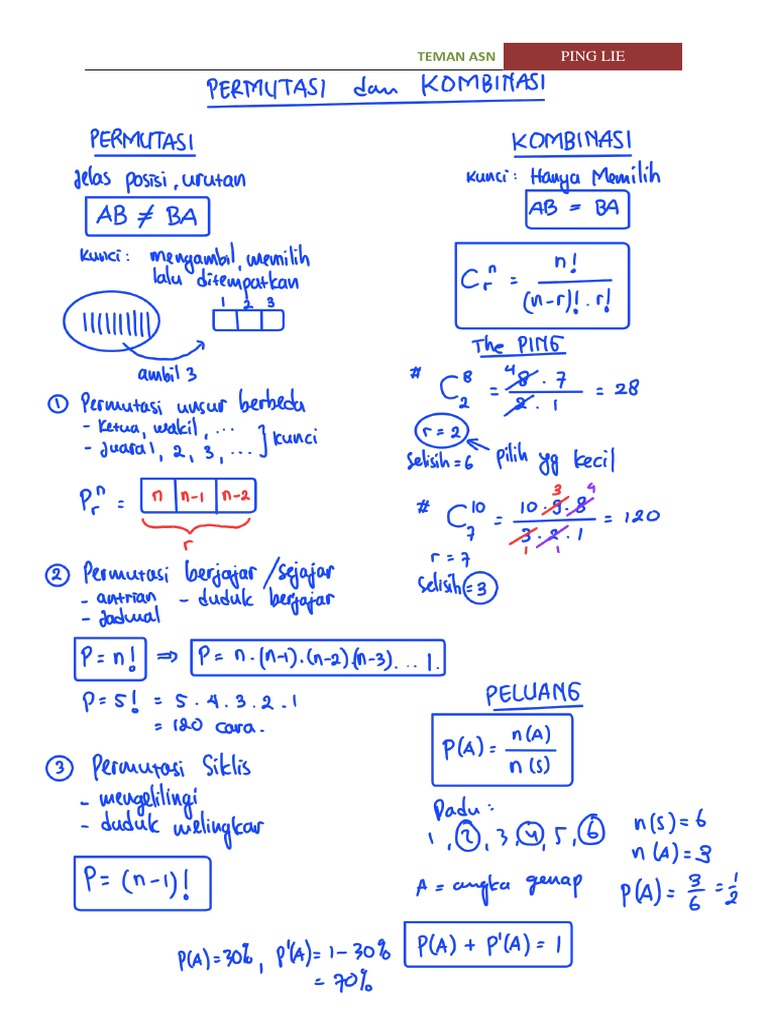 TEMAN ASN PING LIE
PERMUTASI dan KOMBINASI
PERMUTASI
Jelas posisi, urutan
AB ≠ BA
Kunci: mengambil, memilih
lalu ditempatkan
1 2 3
ambil 3
① Permutasi unsur berbeda
- Ketua, wakil, ...
- Juara 1, 2, 3, ... } kunci
P n r = n n-1 n-2
r
② Permutasi berjajar/sejajar
- antrian - duduk berjajar
- Jadwal
P = n! ⇒ P = n.(n-1).(n-2).(n-3). ... 1.
P = 5! = 5 . 4 . 3 . 2 . 1
= 120 cara.
③ Permutasi Siklis
- mengelilingi
- duduk melingkar
P = (n-1)!
KOMBINASI
Kunci: Hanya Memilih
AB = BA
C n r = n! / (n-r)! . r!
The PING
# C 8 2 = 4 8 . 7 / 2 . 1 = 28
r = 2
Selisih = 6 pilih yg kecil
# C 10 7 = 10 . 9 3 . 8 4 / 3 1 . 2 1 . 1 = 120
r = 7
Selisih = 3
PELUANG
P(A) = n(A) / n(S)
Dadu:
1, 2, 3, 4, 5, 6
n(S) = 6
n(A) = 3
A = angka genap
P(A) = 3/6 = 1/2
P(A) + P'(A) = 1
P(A) = 30%, P'(A) = 1 - 30%
= 70%